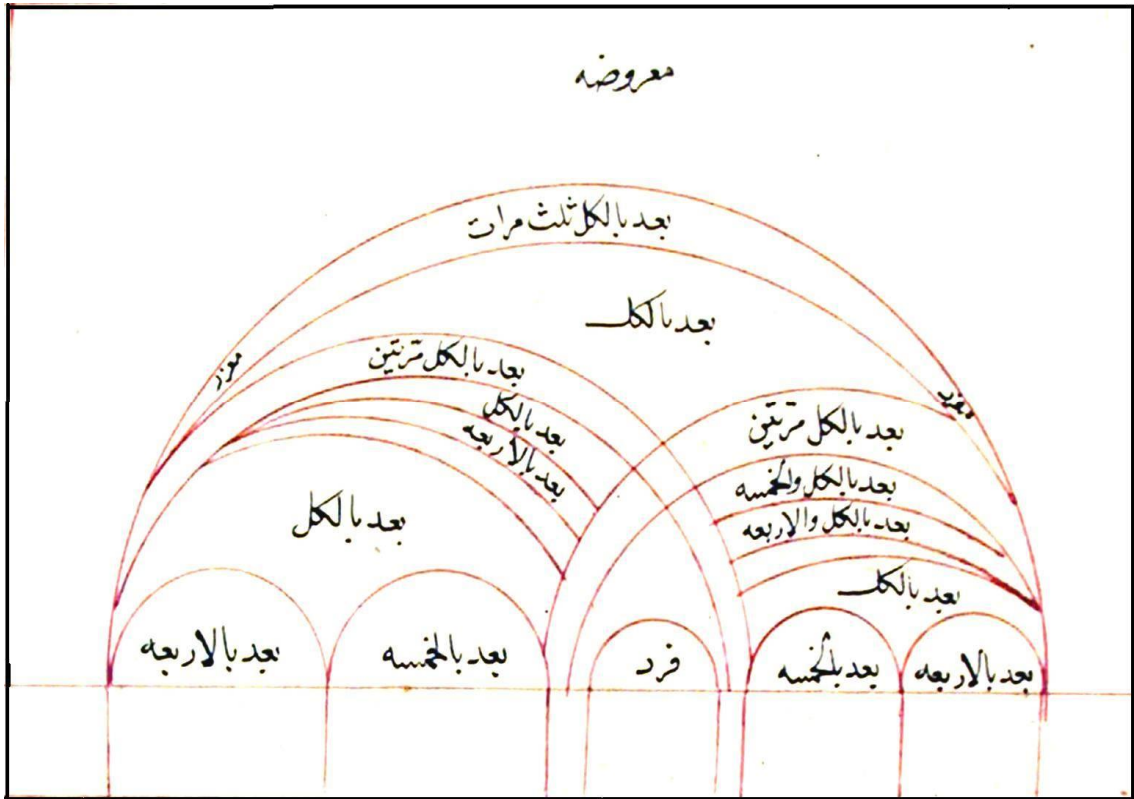 معروضه
بعد بالكل ثلث مرات
بعد بالكل
بعد بالكل مرتين
بعد بالكل
بعد بالاربعه
بعد بالكل
بعد بالكل مرتين
بعد بالكل والخمسه
بعد بالكل والاربعه
بعد بالكل
بعد بالاربعه
بعد بالخمسه
فرد
بعد بالخمسه
بعد بالاربعه